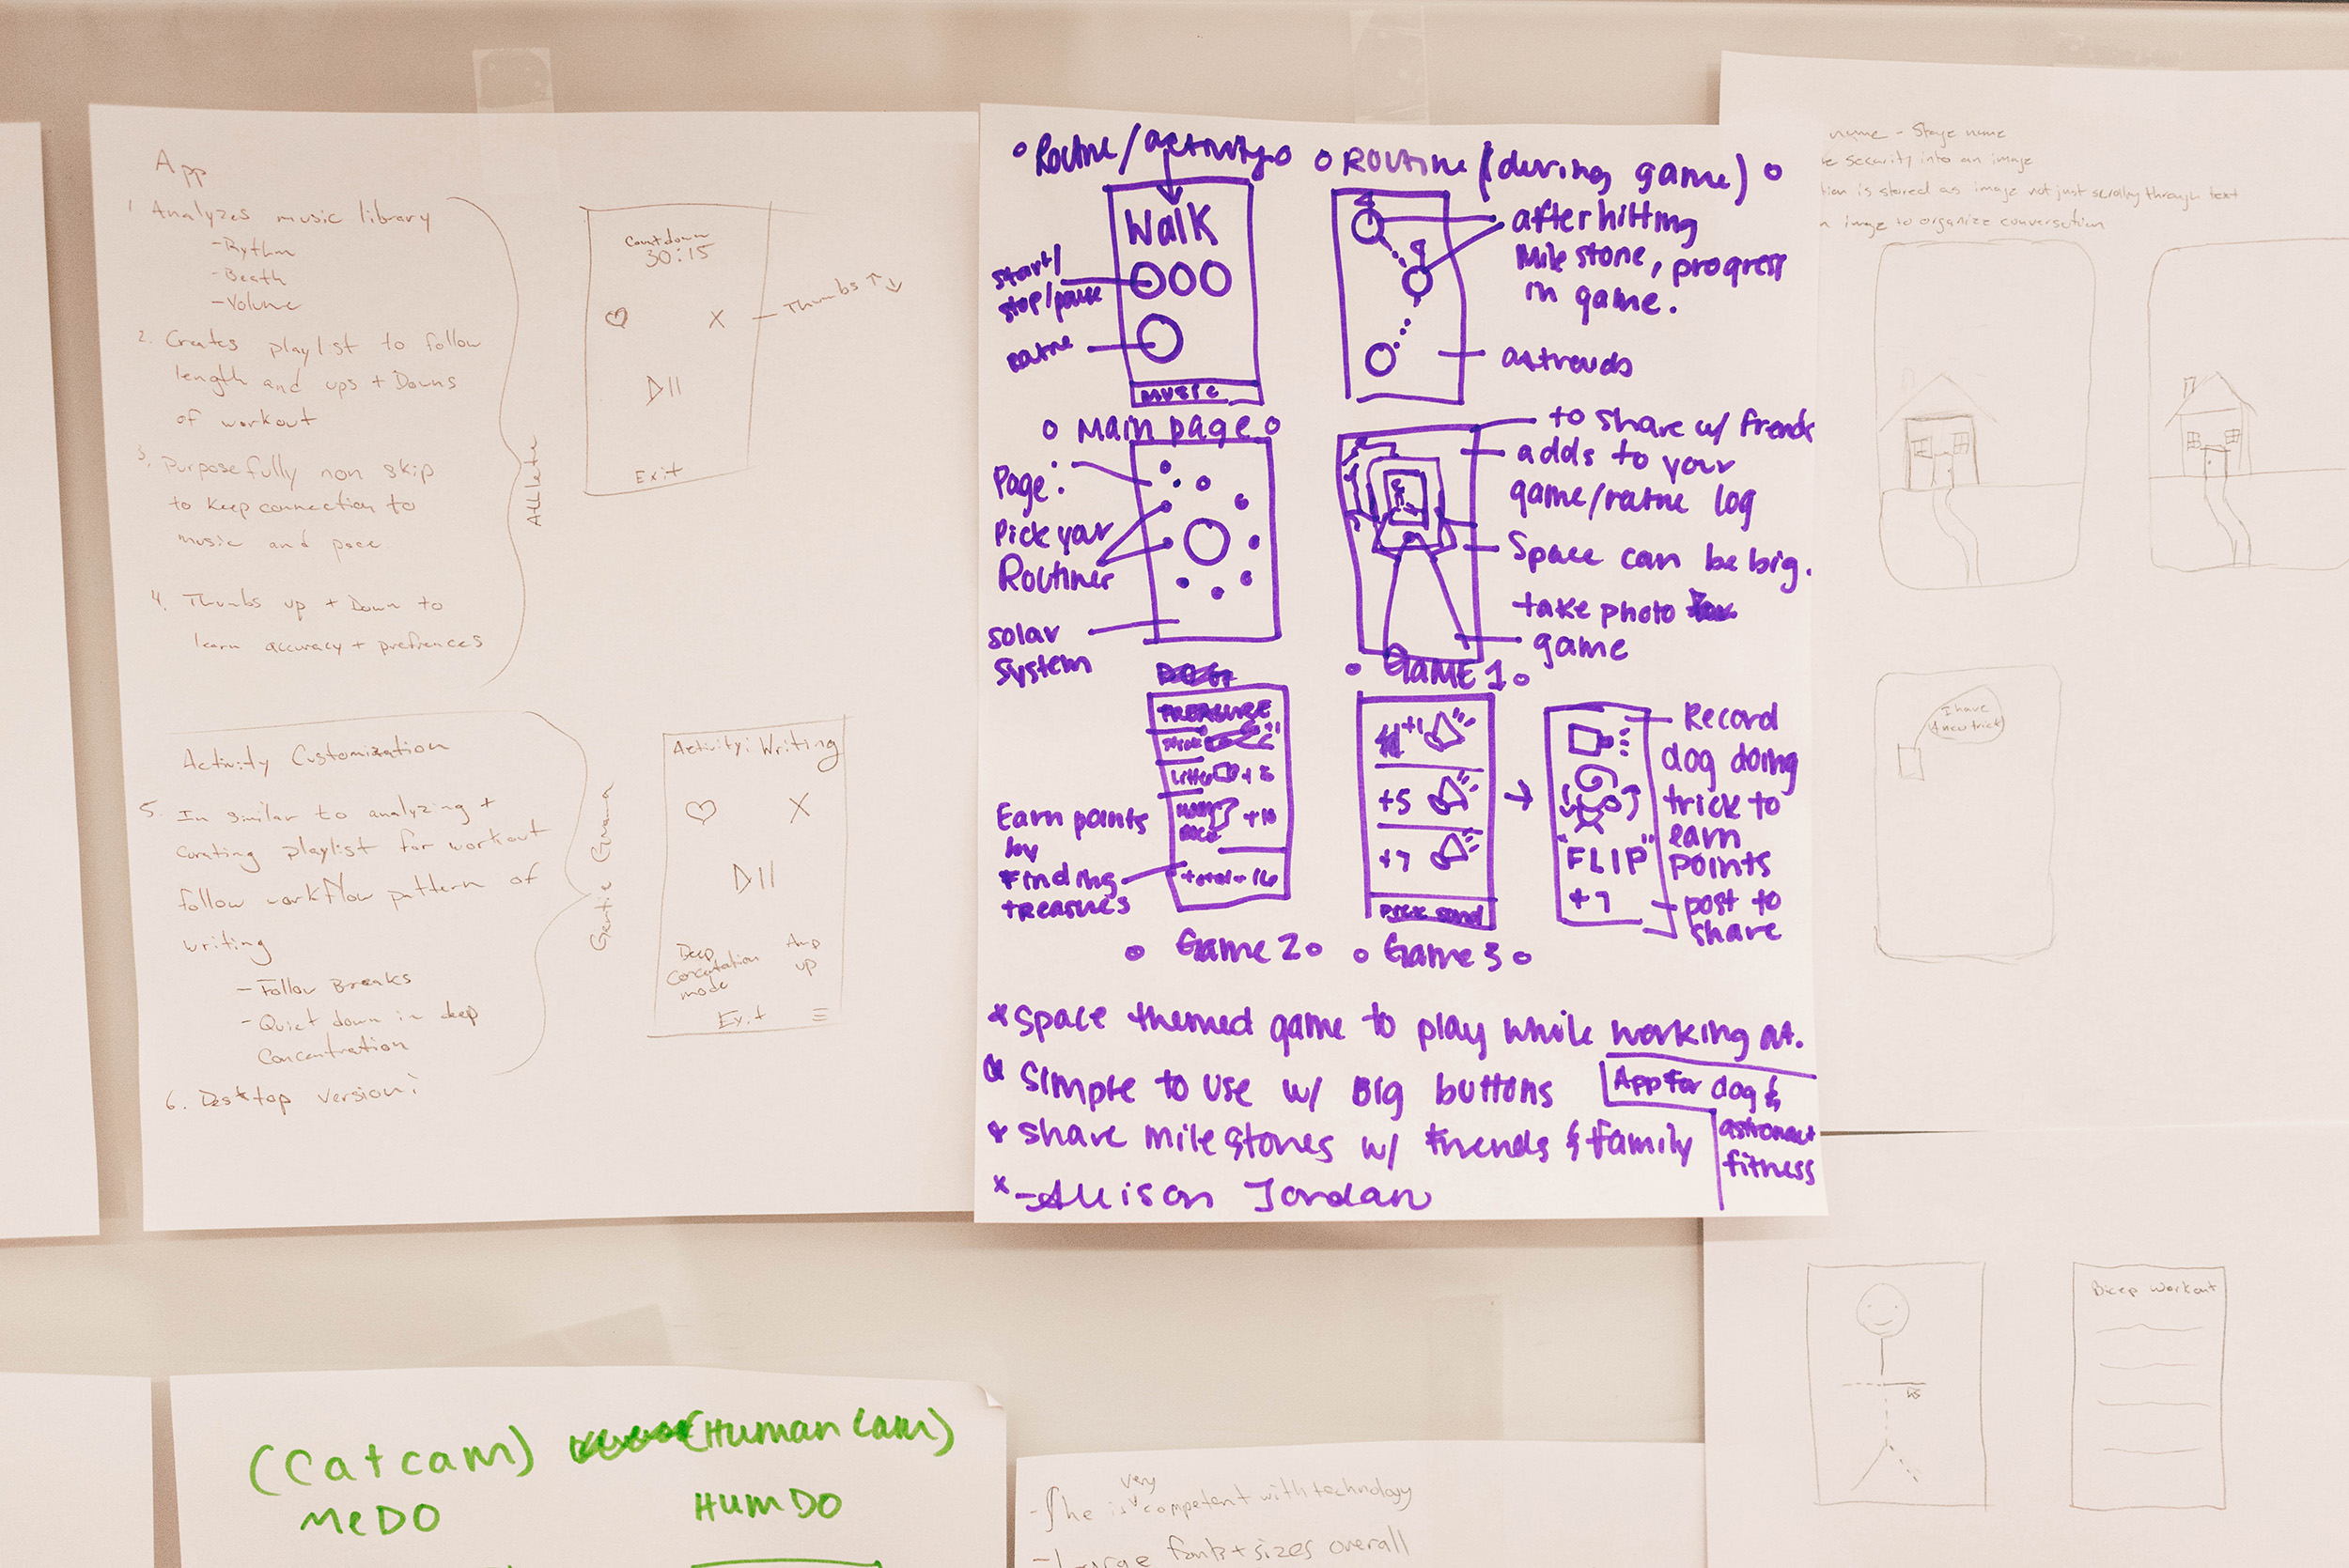 App
1 Analyzes music library
- Rythm
- Beath
- Volume
2. Creates playlist to follow
length and ups + Downs
of workout
3. Purposefully non skip
to keep connection to
music and pace
4. Thumbs up + Down to
learn accuracy + prefrences
Athlete
Countdown
30:15
X
Thumbs ↑↓
Exit
Activity Customization
5. In similar to analyzing +
curating playlist for workout
follow workflow pattern of
writing
- Follow Breaks
- Quiet down in deep
Concentration
6. Desktop version?
Activity: Writing
X
Deep
mode
Amp
up
Exit
Routine/activity
Walk
start/
stop/pause
MUSIC
ROUTINE (during game)
after hitting
Mile stone, progress
in game.
Main page
Page:
Pick your
solar
system
to share w/ friends
adds to your
game/ log
Space can be big.
take photo
game
GAME 1
TREASURE
+10
total = 16
Earn points
by
Finding
treasures
Game 2
+1
+5
+7
Game 3
Record
dog doing
trick to
earn
points
post to
share
"FLIP"
+7
* space themed game to play while working
* simple to use w/ Big buttons
* share milestones w/ friends & family
* - Allison Jordan
App for dog &
astronaut
fitness
name - Stage name
security into an image
is stored as image not just scrolling through text
image to organize conversation
I have
A new trick
Bicep workout
(Cat cam)
MeDO
(Human Cam)
HUMDO
- She is very competent with technology
- Large fonts + sizes overall